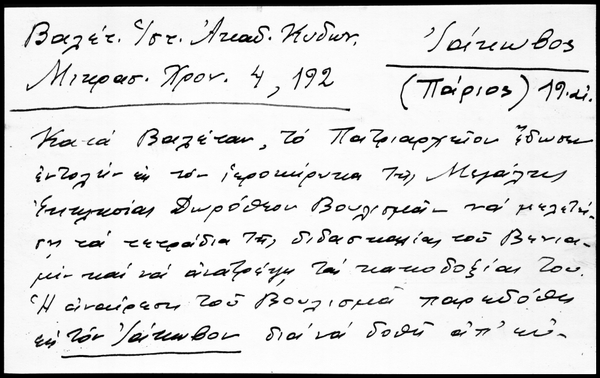 Βαλέτ. Ἱστ. Ἀκαδ. Κυδων.
Ἰάκωβος
Μικρασ. Χρον. 4, 192
(Πάριος) 19. αἰ.
Κατά Βαλέταν, τό Πατριαρχεῖον ἔδωσεν
ἐντολήν εἰς τόν ἱεροκήρυκα τῆς Μεγάλης
Ἐκκλησίας Δωρόθεον Βουλισμᾶν νά μελετή-
σῃ τά τετράδια τῆς διδασκαλίας τοῦ Βενια-
μίν καί νά ἀνατρέψῃ τάς κακοδοξίας του.
Ἡ ἀναίρεση τοῦ Βουλισμᾶ παρεδόθη
εἰς τόν Ἰάκωβον διά νά δοθῇ ἀπ' εὐ-